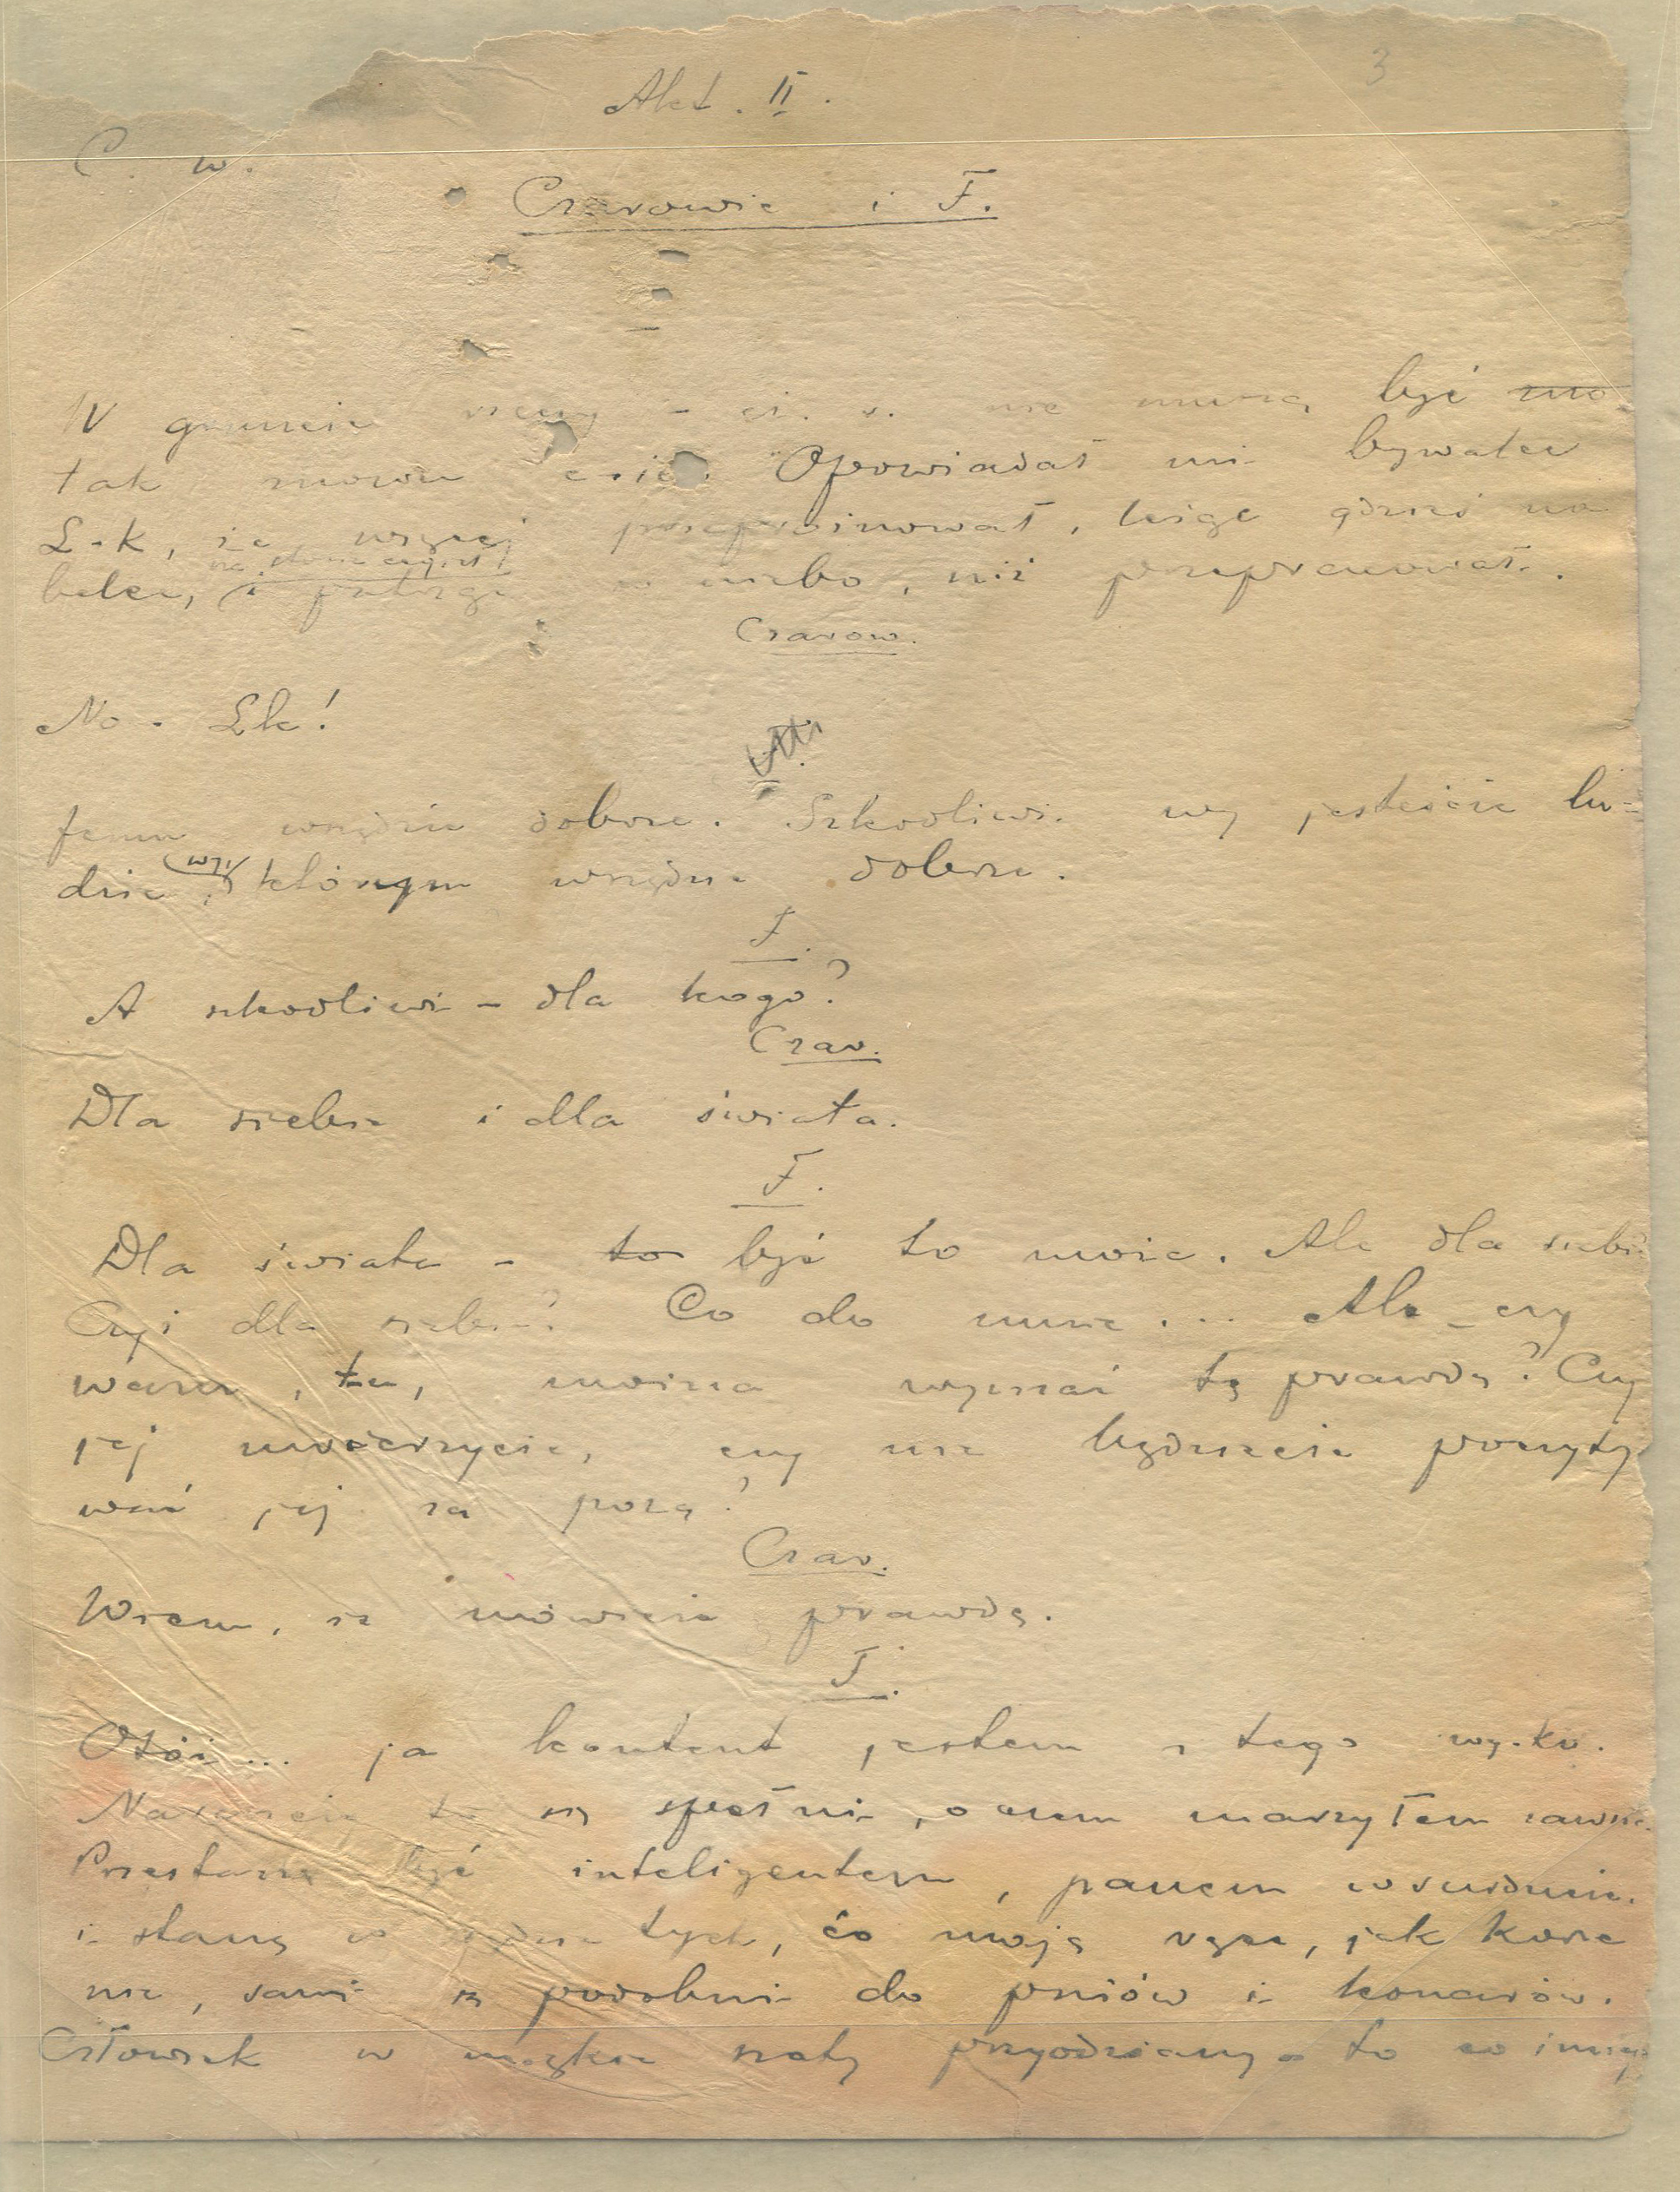 3
Akt. II.
C. w.
Czarowic i F.
W gruncie rzeczy - nie muszą być
tak znowu Opowiadał mi bywalec
L-k, że więcej przepróżnował, leżąc gdzieś na
belce, i patrząc w niebo, niż przepracował.
Czarow.
No - Lk!
F.
Temu wszędzie dobrze. Szkodliwi wy jesteście lu-
dzie, wy, którym wszędzie dobrze.
F.
A szkodliwi - dla kogo?
Czar.
Dla siebie i dla świata.
F.
Dla świata - to być to może. Ale dla siebie
Czyż dla siebie? Co do mnie... Ale - czy
wam, tu, można wyznać tę prawdę? Czy
jej uwierzycie, czy nie będziecie poczyty
wać jej za pozę?
Czar.
Wiem, że mówicie prawdę.
F.
Otóż... ja kontent jestem z tego wy-ku.
Nareszcie to się spełni, o czem marzyłem zawsze.
Przestanę być inteligentem, panem w surducie.
i stanę w rzędzie tych, co mają ręce, jak korze
nie, sami są podobni do pniów i konarów.
Człowiek w miękkie szaty przyodziany - to co innego